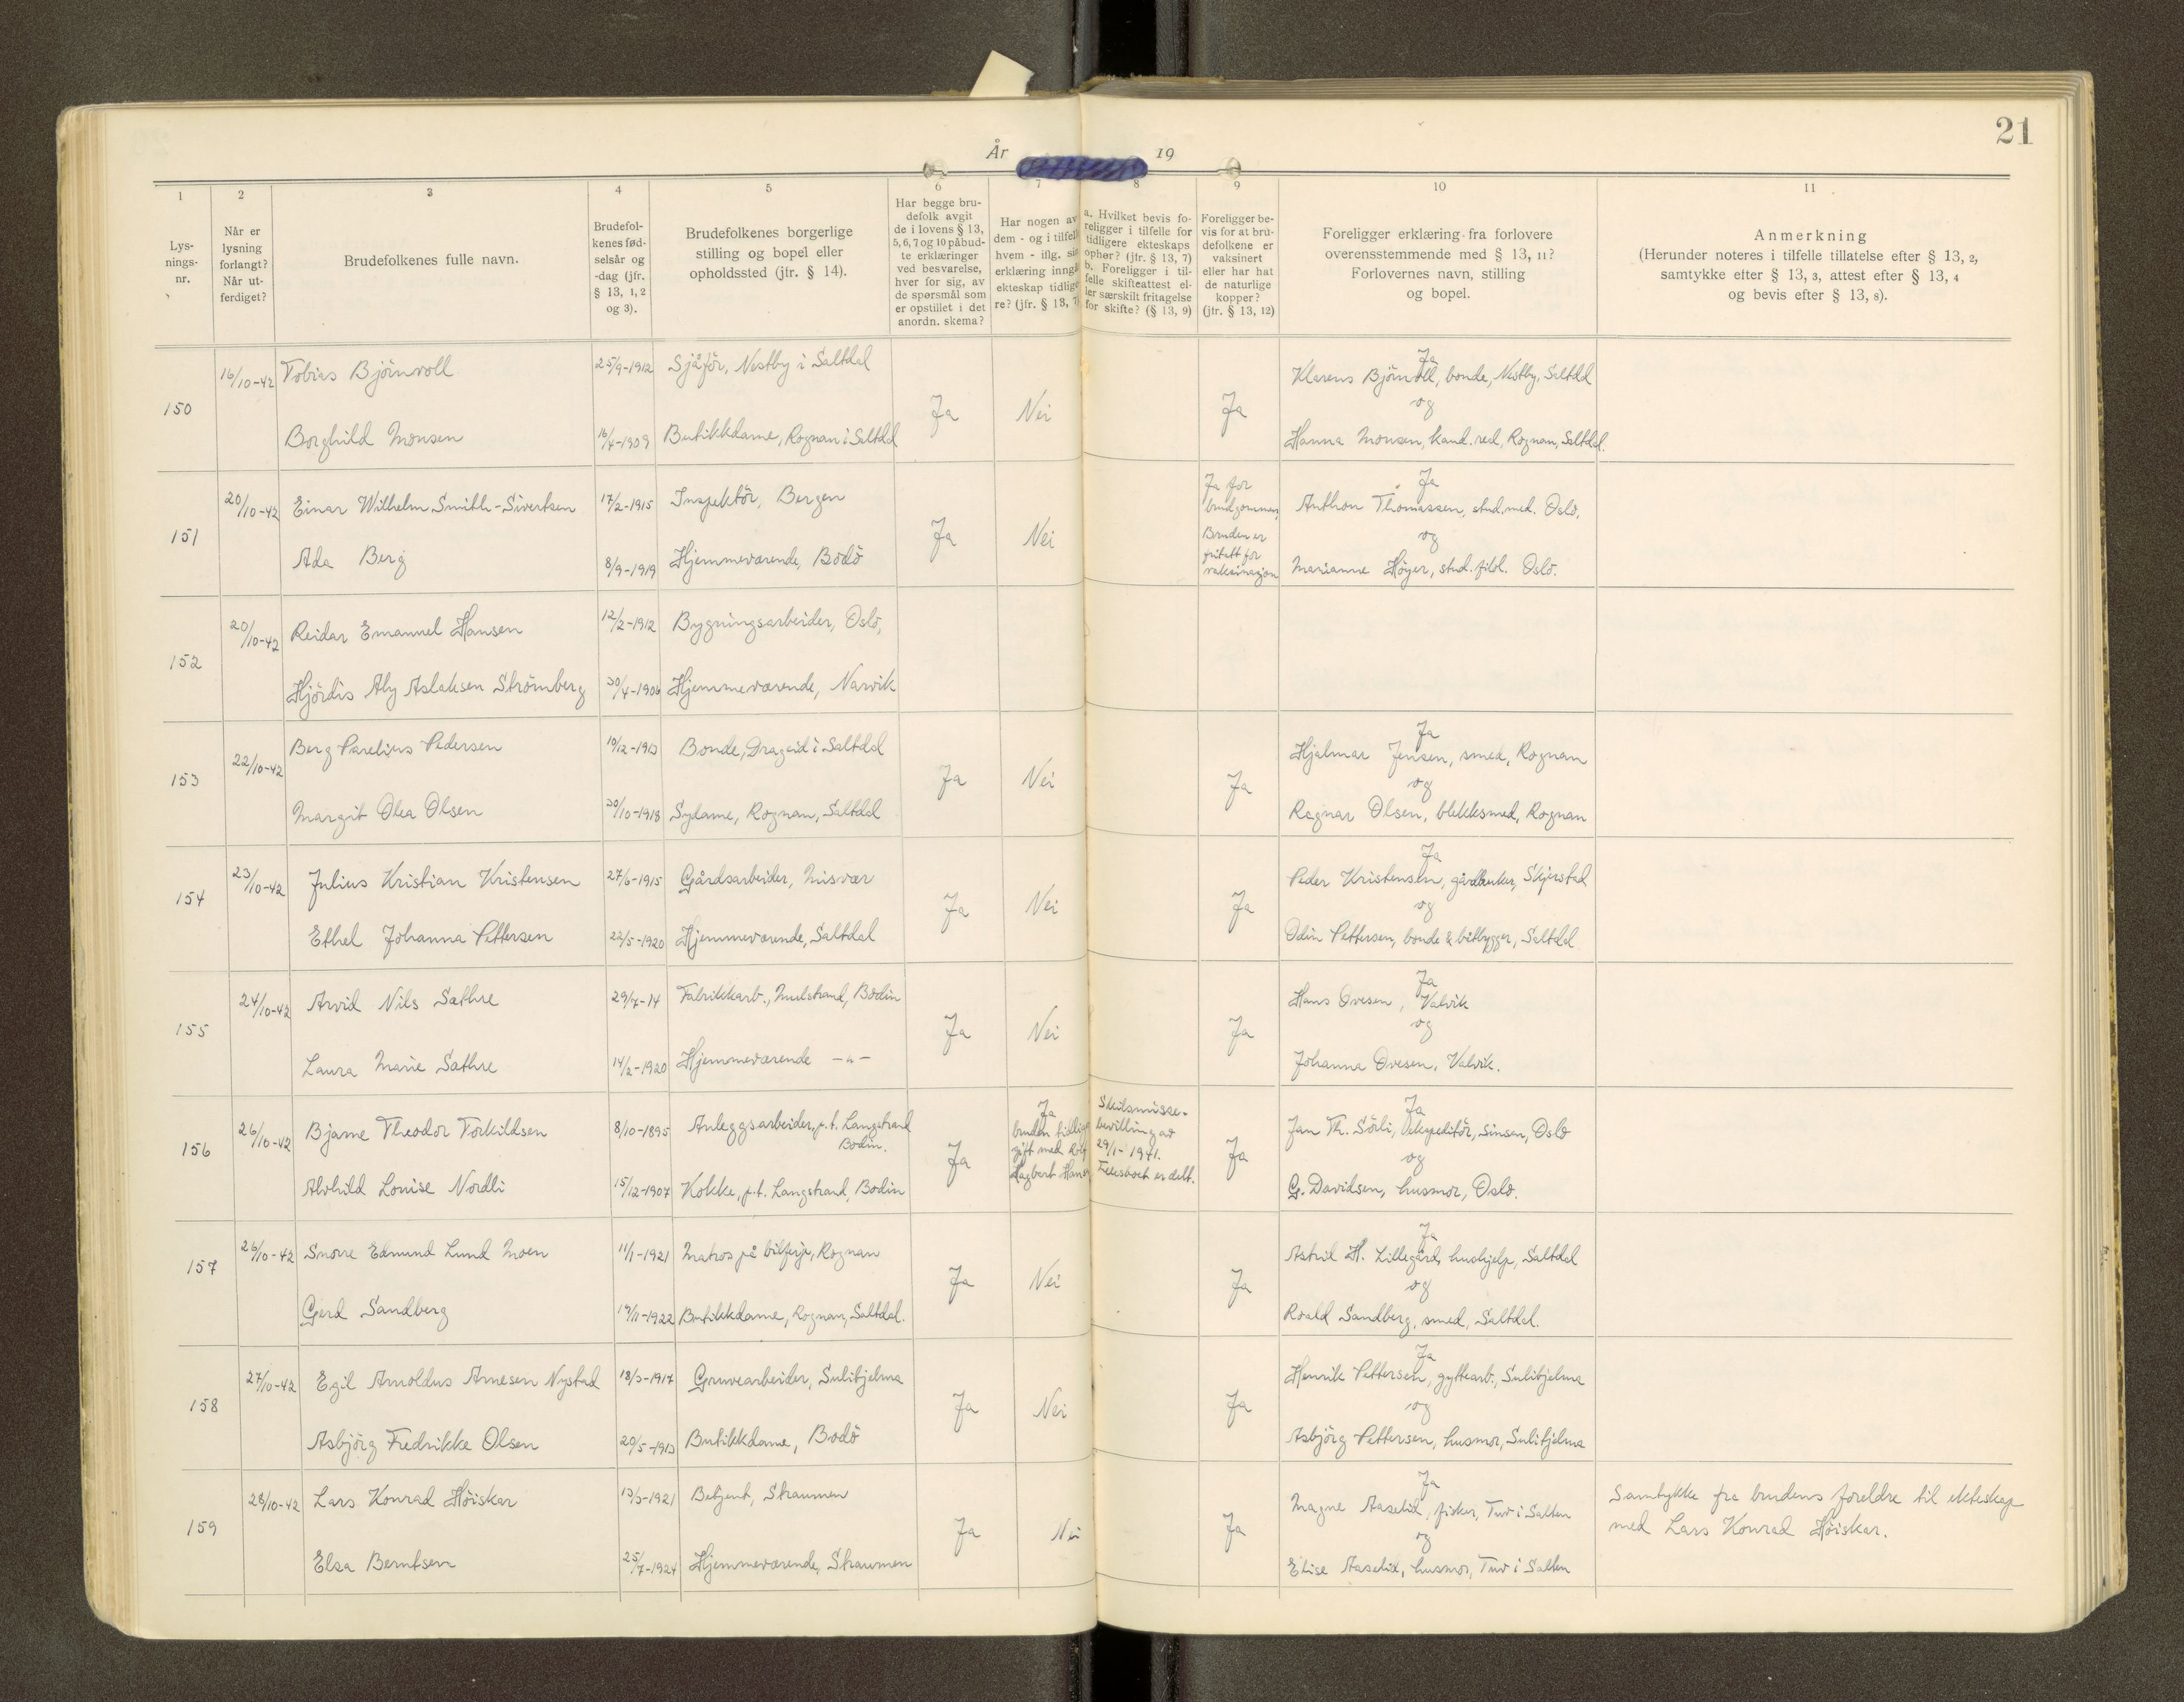 21
År 19
1 2 3 4 5 6 7 8 9 10 11
Lys-
nings-
nr.
Når er
lysning
forlangt?
Når ut-
ferdiget?
Brudefolkenes fulle navn.
Brudefol-
kenes fød-
selsår og
-dag (jfr.
§ 13, 1, 2
og 3).
Brudefolkenes borgerlige
stilling og bopel eller
opholdssted (jfr. § 14).
Har begge bru-
defolk avgit
de i lovens § 13,
5, 6, 7 og 10 påbud-
te erklæringer
ved besvarelse,
hver for sig, av
de spørsmål som
er opstillet i det
anordn. skema?
Har nogen av
dem - og i tilfelle
hvem - iflg. sin
erklæring inngå
ekteskap tidlige
re? (jfr. § 13, 7)
a. Hvilket bevis fo-
religger i tilfelle for
tidligere ekteskaps
ophør? (jfr. § 13, 7)
b. Foreligger i til-
felle skifteattest el-
ler særskilt fritagelse
for skifte? (§ 13, 9)
Foreligger be-
vis for at bru-
defolkene er
vaksinert
eller har hat
de naturlige
kopper?
(jfr. § 13, 12)
Foreligger erklæring fra forlovere
overensstemmende med § 13, 11?
Forlovernes navn, stilling
og bopel.
Anmerkning
(Herunder noteres i tilfelle tillatelse efter § 13, 2,
samtykke efter § 13, 3, attest efter § 13, 4
og bevis efter § 13, 8).
150
16/10-42 Tobias Björnvoll 25/9-1912 Sjåför, Nestby i Saltdal
Borghild Monsen 16/4-1909 Butikkdame, Rognan i Saltdal
Ja Nei Ja
Ja
Klarens Björnvoll, bonde, Nestby, Saltdal
og
Hanna Monsen, kand. real, Rognan, Saltdal.
151
20/10-42 Einar Wilhelm Smith-Sivertsen 17/2-1915 Inspektör, Bergen
Ada Berg 8/9-1919 Hjemmeværende, Bodö
Ja Nei
Ja for
brudgommen,
Bruden er
fritatt for
vaksinasjon
Ja
Anthon Thomassen, stud. med. Oslo,
og
Marianne Höyer, stud. filol. Oslo.
152
20/10-42 Reidar Emanuel Hansen 12/2-1912 Bygningsarbeider, Oslo,
Hjördis Aly Aslaksen Strömberg 30/4-1906 Hjemmeværende, Narvik
153
22/10-42 Berg Parelius Pedersen 10/12-1913 Bonde, Drageid i Saltdal
Margit Olea Olsen 30/10-1918 Sydame, Rognan, Saltdal
Ja Nei Ja
Ja
Hjalmar Jensen, smed, Rognan
og
Ragnar Olsen, blikksmed, Rognan
154
23/10-42 Julius Kristian Kristensen 27/6-1915 Gårdsarbeider, Misvær
Ethel Johanna Pettersen 22/5-1920 Hjemmeværende, Saltdal
Ja Nei Ja
Ja
Peder Kristensen, gårdbruker, Skjerstad
og
Odin Pettersen, bonde & båtbygger, Saltdal
155
24/10-42 Arvid Nils Sæthre 29/4-14 Fabrikkarb., Bodin
Laura Marie Sæthre 14/2-1920 Hjemmeværende -"-
Ja Nei Ja
Ja
Hans Ovesen, Valvik
og
Johanna Ovesen, Valvik.
156
26/10-42 Bjarne Theodor Torkildsen 8/10-1895 Anleggsarbeider, p.t. Langstrand
Bodin.
Alvhild Louise Nordli 15/12-1907 Kokke, p.t. Langstrand, Bodin
Ja
Ja
bruden tidlige
gift med Rolf
Dagbert Hans
Skilsmisse-
bevilling av
29/1-1941.
Fellesboet er delt.
Ja
Ja
Jan Th. Sörli, ekspeditör, Sinsen, Oslo
og
G. Davidsen, husmor, Oslo.
157
26/10-42 Snorre Edmund Lund Moen 11/1-1921 Matros på bilferje, Rognan
Gerd Sandberg 19/11-1922 Butikkdame, Rognan, Saltdal.
Ja Nei Ja
Ja
Astrid H. Lillegård, hushjelp, Saltdal
og
Roald Sandberg, smed, Saltdal.
158
27/10-42 Egil Arnoldus Arnesen Nystad 18/3-1917 Gruvearbeider, Sulitjelma
Asbjörg Fredrikke Olsen 20/5-1913 Butikkdame, Bodö
Ja Nei Ja
Ja
Henrik Pettersen, gyttearb., Sulitjelma
og
Asbjörg Pettersen, husmor, Sulitjelma
159
28/10-42 Lars Konrad Höiskar 13/3-1921 Betjent, Straumen
Elsa Berntsen 25/7-1924 Hjemmeværende, Straumen
Ja Nei Ja
Ja
Magne Aaselid, fisker, Tuv i Salten
og
Elise Aaselid, husmor, Tuv i Salten
Samtykke fra brudens foreldre til ekteskap
med Lars Konrad Höiskar.